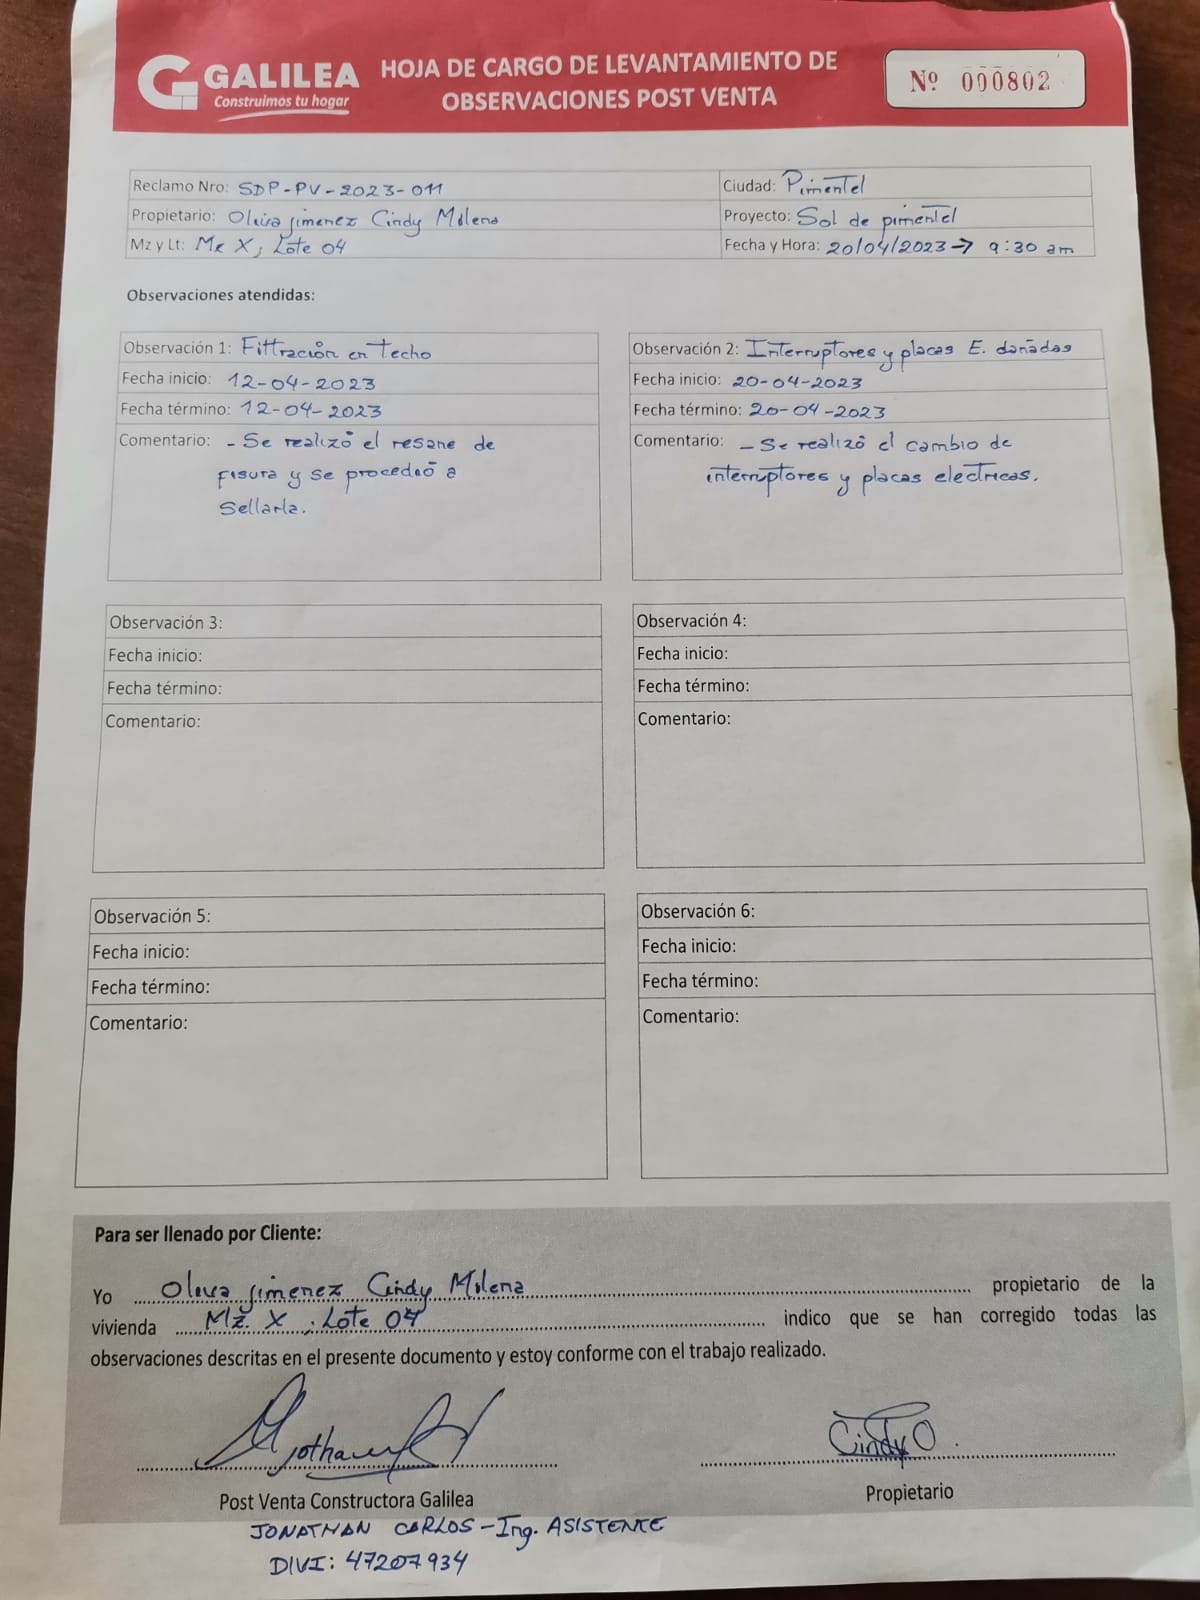 GALILEA
Construimos tu hogar
HOJA DE CARGO DE LEVANTAMIENTO DE
OBSERVACIONES POST VENTA
Nº 000802
Reclamo Nro: SDP-PV-2023-011
Ciudad: Pimentel
Propietario: Oliva Jimenez Cindy Milena
Proyecto: Sol de pimentel
Mz y Lt: Mz X; Lote 04
Fecha y Hora: 20/04/2023 → 9:30 am
Observaciones atendidas:
Observación 1: Filtración en Techo
Fecha inicio: 12-04-2023
Fecha término: 12-04-2023
Comentario: - Se realizó el resane de
fisura y se procedió a
Sellarla.
Observación 2: Interruptores y placas E. dañadas
Fecha inicio: 20-04-2023
Fecha término: 20-04-2023
Comentario: - Se realizó el cambio de
interruptores y placas electricas.
Observación 3:
Fecha inicio:
Fecha término:
Comentario:
Observación 4:
Fecha inicio:
Fecha término:
Comentario:
Observación 5:
Fecha inicio:
Fecha término:
Comentario:
Observación 6:
Fecha inicio:
Fecha término:
Comentario:
Para ser llenado por Cliente:
Yo Oliva Jimenez Cindy Milena propietario de la
vivienda Mz. X ; Lote 04 indico que se han corregido todas las
observaciones descritas en el presente documento y estoy conforme con el trabajo realizado.
Cindy O.
Post Venta Constructora Galilea
Propietario
JONATHAN CARLOS - Ing. ASISTENTE
DNI: 47207934